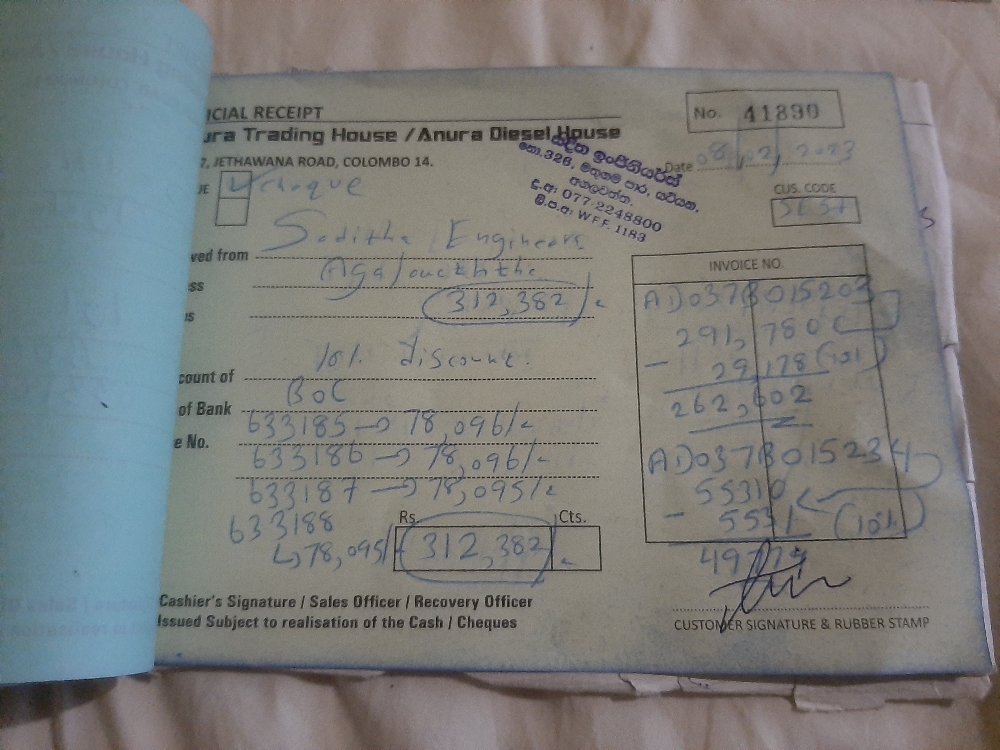 ICIAL RECEIPT
No. 41890
ura Trading House / Anura Diesel House
7, JETHAWANA ROAD, COLOMBO 14.
සදිත ඉංජිනියර්ස්
නො.326, මතුගම පාර, යටියන,
අගලවත්ත.
දු.අ: 077-2248800
ලි.ප.අ: W.F.F. 1183
Date 08/02/2023
UE ✓ cheque
CUS. CODE
ved from Saditha Engineers
INVOICE NO.
ss Agalawaththa
AD037B015203
es 312,382/-
291,780
10% discount.
- 29,178 (10%)
count of
262,602
of Bank BOC
e No. 633185 → 78,096/-
633186 → 78,096/-
AD037B015234
633187 → 78,095/-
55310
633188
- 5531 (10%)
↳ 78,095/-
Rs. Cts.
312,382/-
49779
Cashier's Signature / Sales Officer / Recovery Officer
Issued Subject to realisation of the Cash / Cheques
CUSTOMER SIGNATURE & RUBBER STAMP